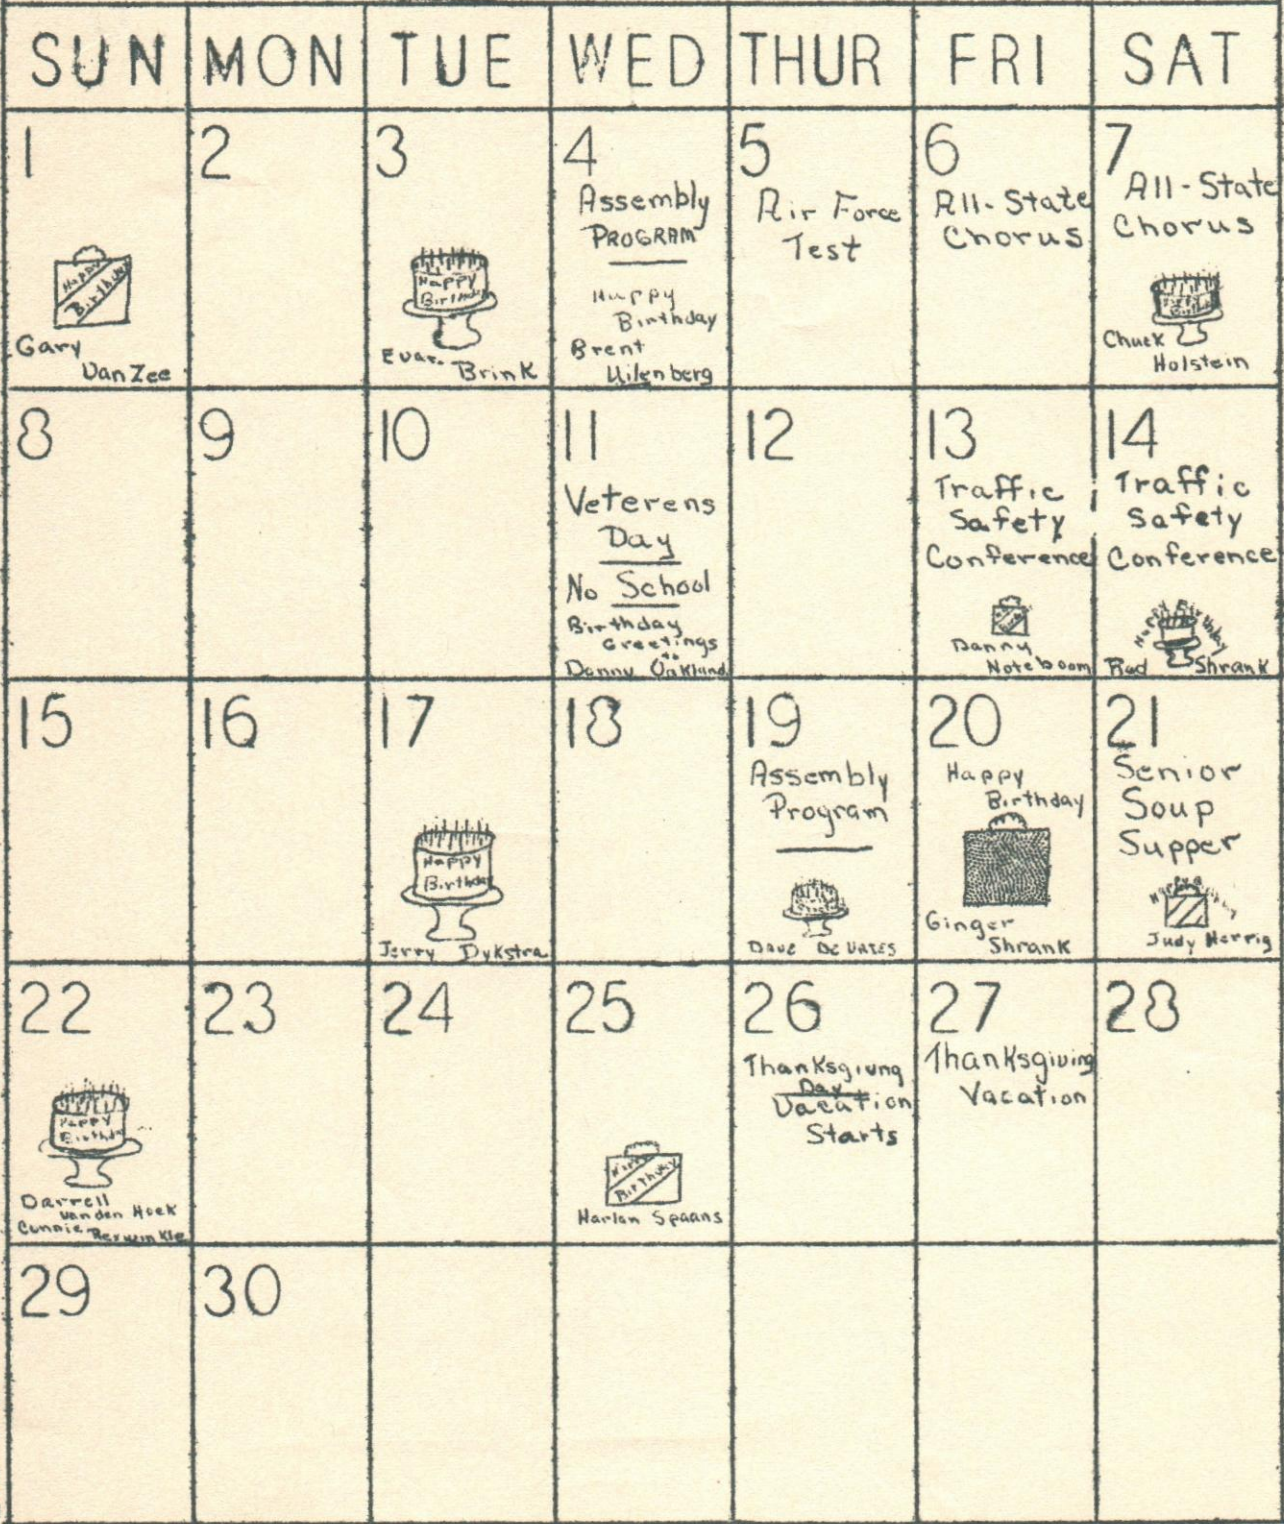 SUN MON TUE WED THUR FRI SAT
1
Happy
Birthday
Gary
VanZee
2
3
Happy
Birthday
Brink
4
Assembly
PROGRAM
Happy
Birthday
Brent
Uilenberg
5
Air Force
Test
6
All-State
Chorus
7
All-State
Chorus
Happy
Birthday
Chuck
Holstein
8
9
10
11
Veterens
Day
No School
Birthday
Greetings
to
Danny Oakland
12
13
Traffic
Safety
Conference
Danny
Noteboom
14
Traffic
Safety
Conference
Happy Birthday
Rod Shrank
15
16
17
Happy
Birthday
Jerry Dykstra
18
19
Assembly
Program
DAVE DE VRIES
20
Happy
Birthday
Ginger
Shrank
21
Senior
Soup
Supper
Judy Herrig
22
Happy
Birthday
Darrell
Vanden Hoek
Connie
23
24
25
Happy
Birthday
Harlan Spaans
26
Thanksgiving
Day
Vacation
Starts
27
Thanksgiving
Vacation
28
29
30